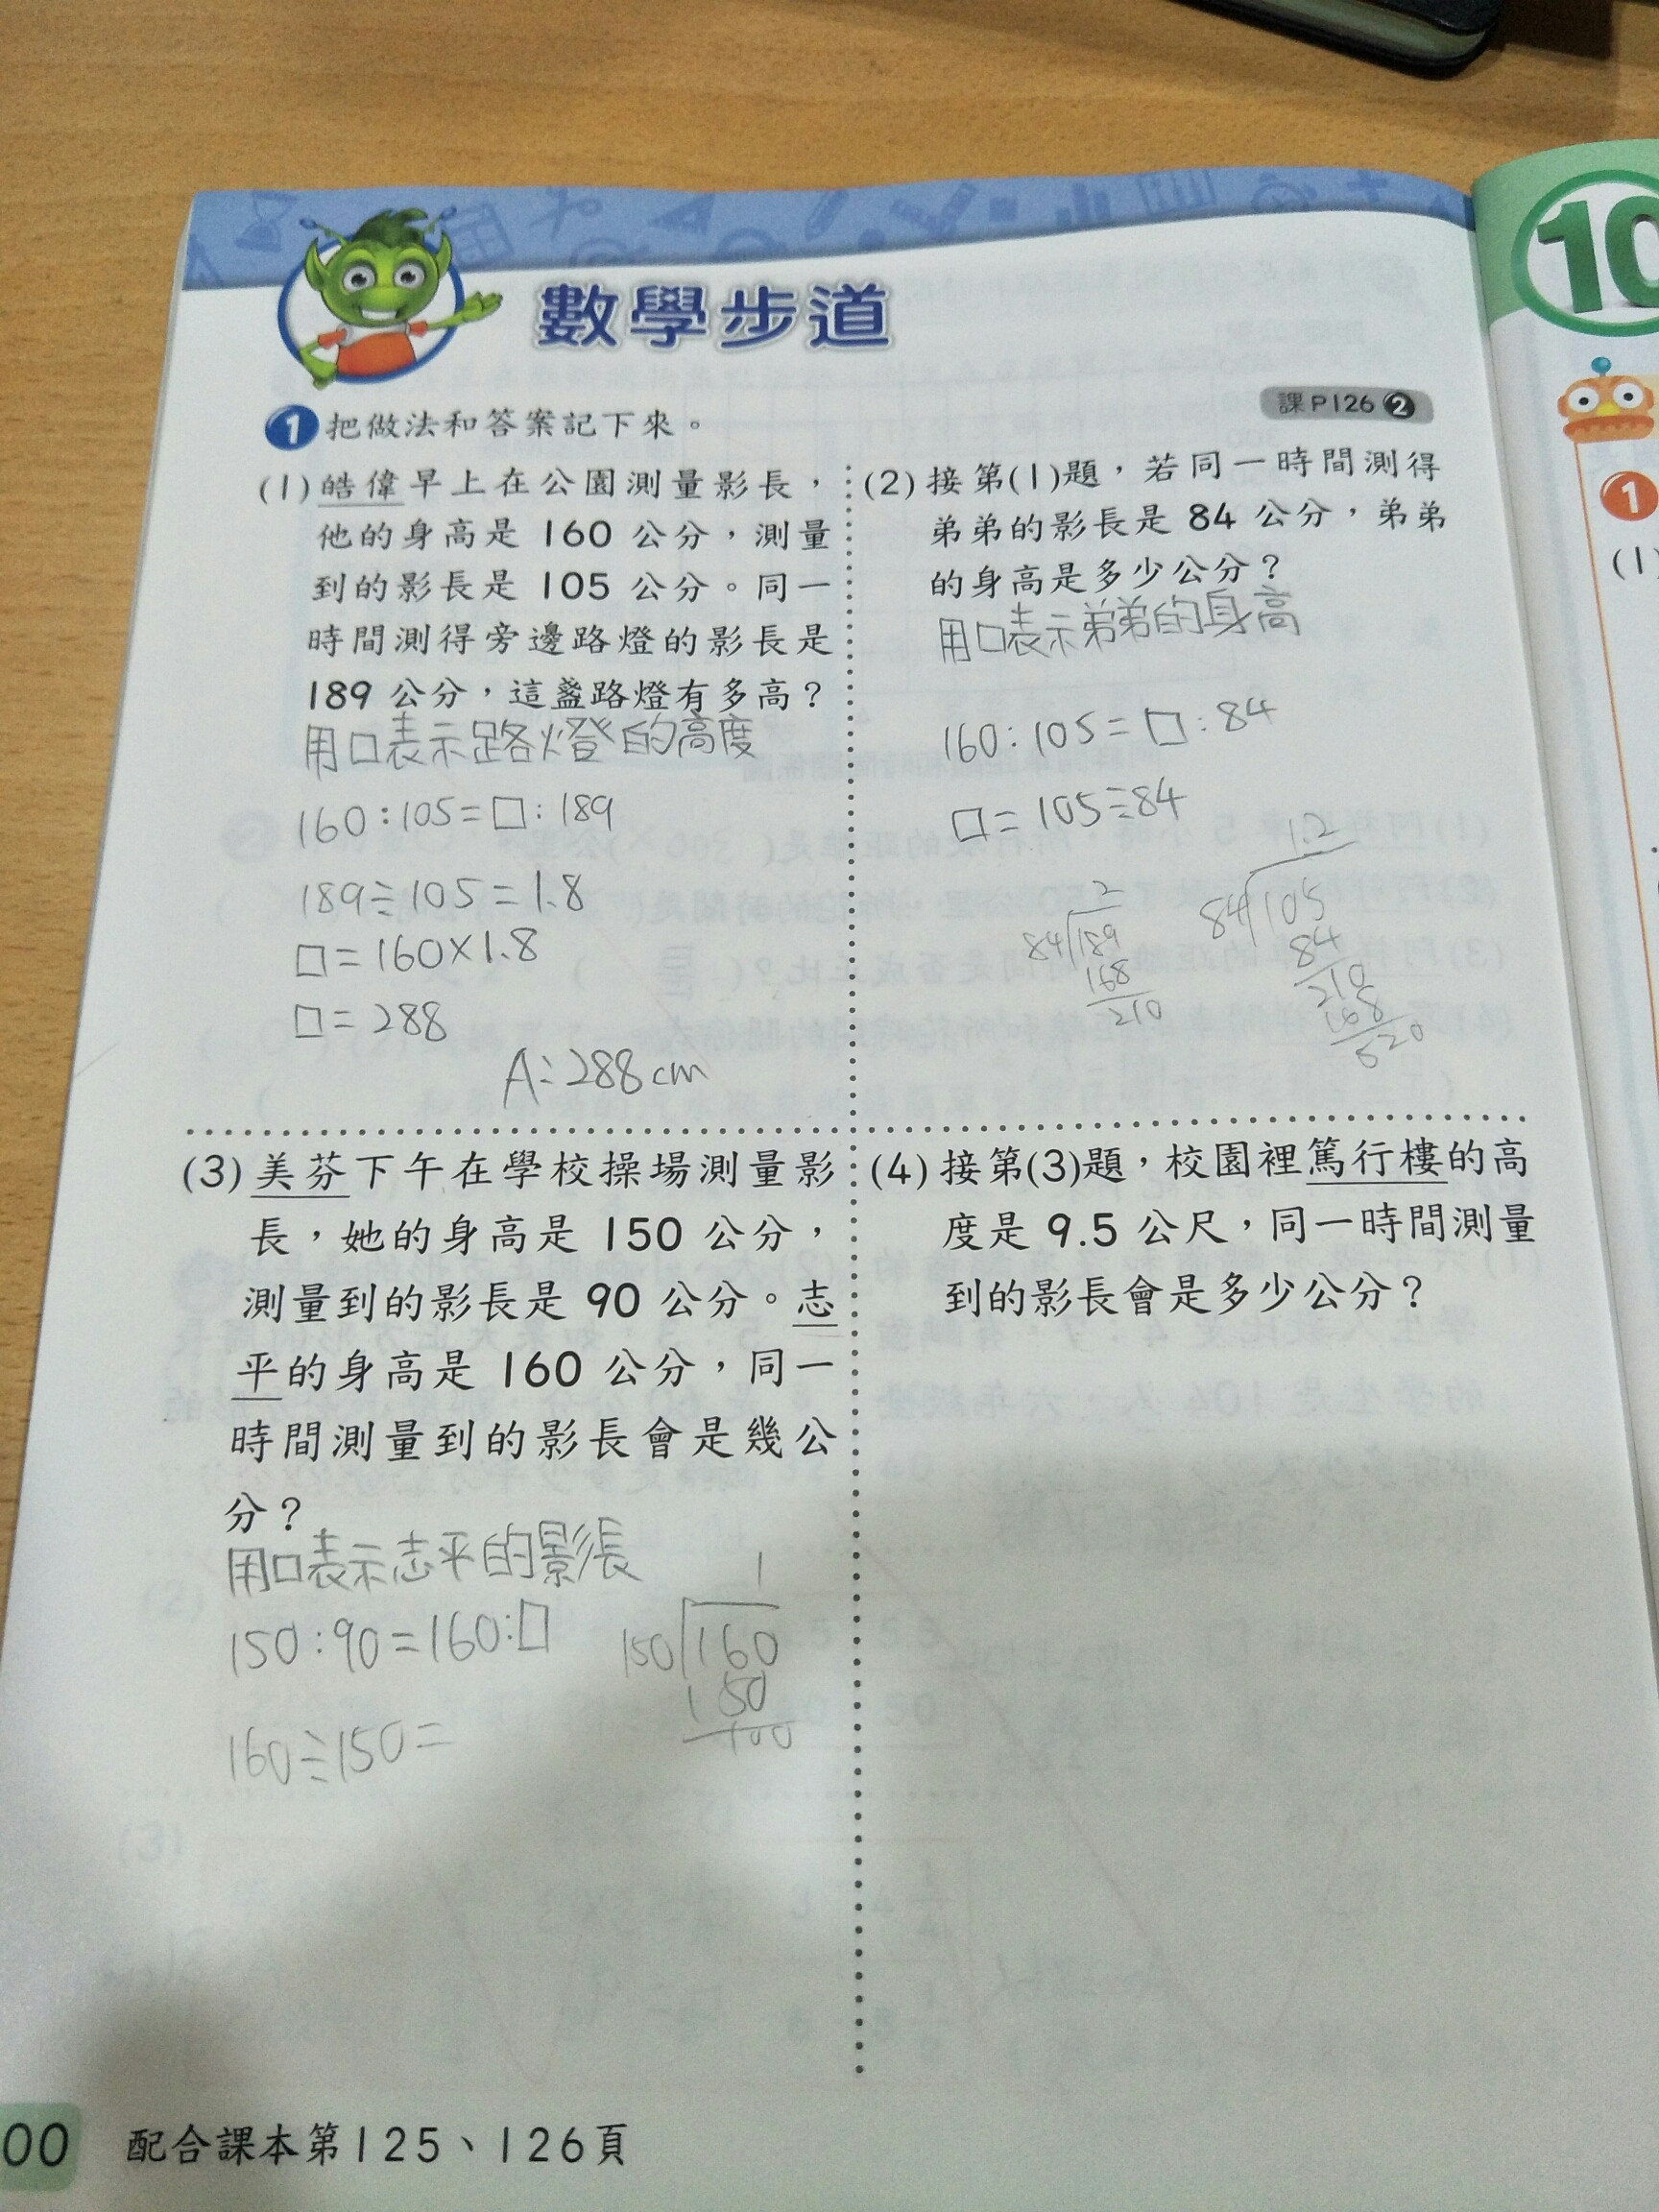 數學步道
10
課P126 2
1 把做法和答案記下來。
(1) 皓偉早上在公園測量影長，
他的身高是 160 公分，測量
到的影長是 105 公分。同一
時間測得旁邊路燈的影長是
189 公分，這盞路燈有多高？
用□表示路燈的高度
160:105=□:189
189÷105=1.8
□=160×1.8
□=288
A:288cm
(2) 接第(1)題，若同一時間測得
弟弟的影長是 84 公分，弟弟
的身高是多少公分？
用□表示弟弟的身高
160:105=□:84
□=105÷84
2
84)189
168
210
1.2
84)105
84
210
168
(3) 美芬下午在學校操場測量影
長，她的身高是 150 公分，
測量到的影長是 90 公分。志
平的身高是 160 公分，同一
時間測量到的影長會是幾公
分？
用□表示志平的影長
150:90=160:□
160÷150=
1
150)160
150
100
(4) 接第(3)題，校園裡篤行樓的高
度是 9.5 公尺，同一時間測量
到的影長會是多少公分？
00 配合課本第125、126頁
1
(1)